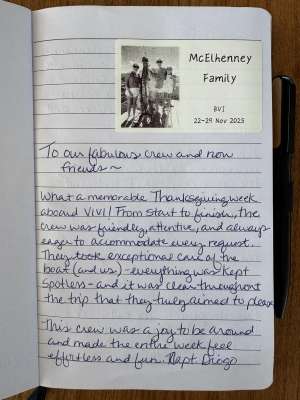 McElhenney
Family
BVI
22-29 Nov 2025
To our fabulous crew and now
friends ~
What a memorable Thanksgiving week
aboard ViVi! From start to finish, the
crew was friendly, attentive, and always
eager to accommodate every request.
They took exceptional care of the
boat (and us) - everything was kept
spotless - and it was clear throughout
the trip that they truly aimed to please.
This crew was a joy to be around
and made the entire week feel
effortless and fun. Capt Diego